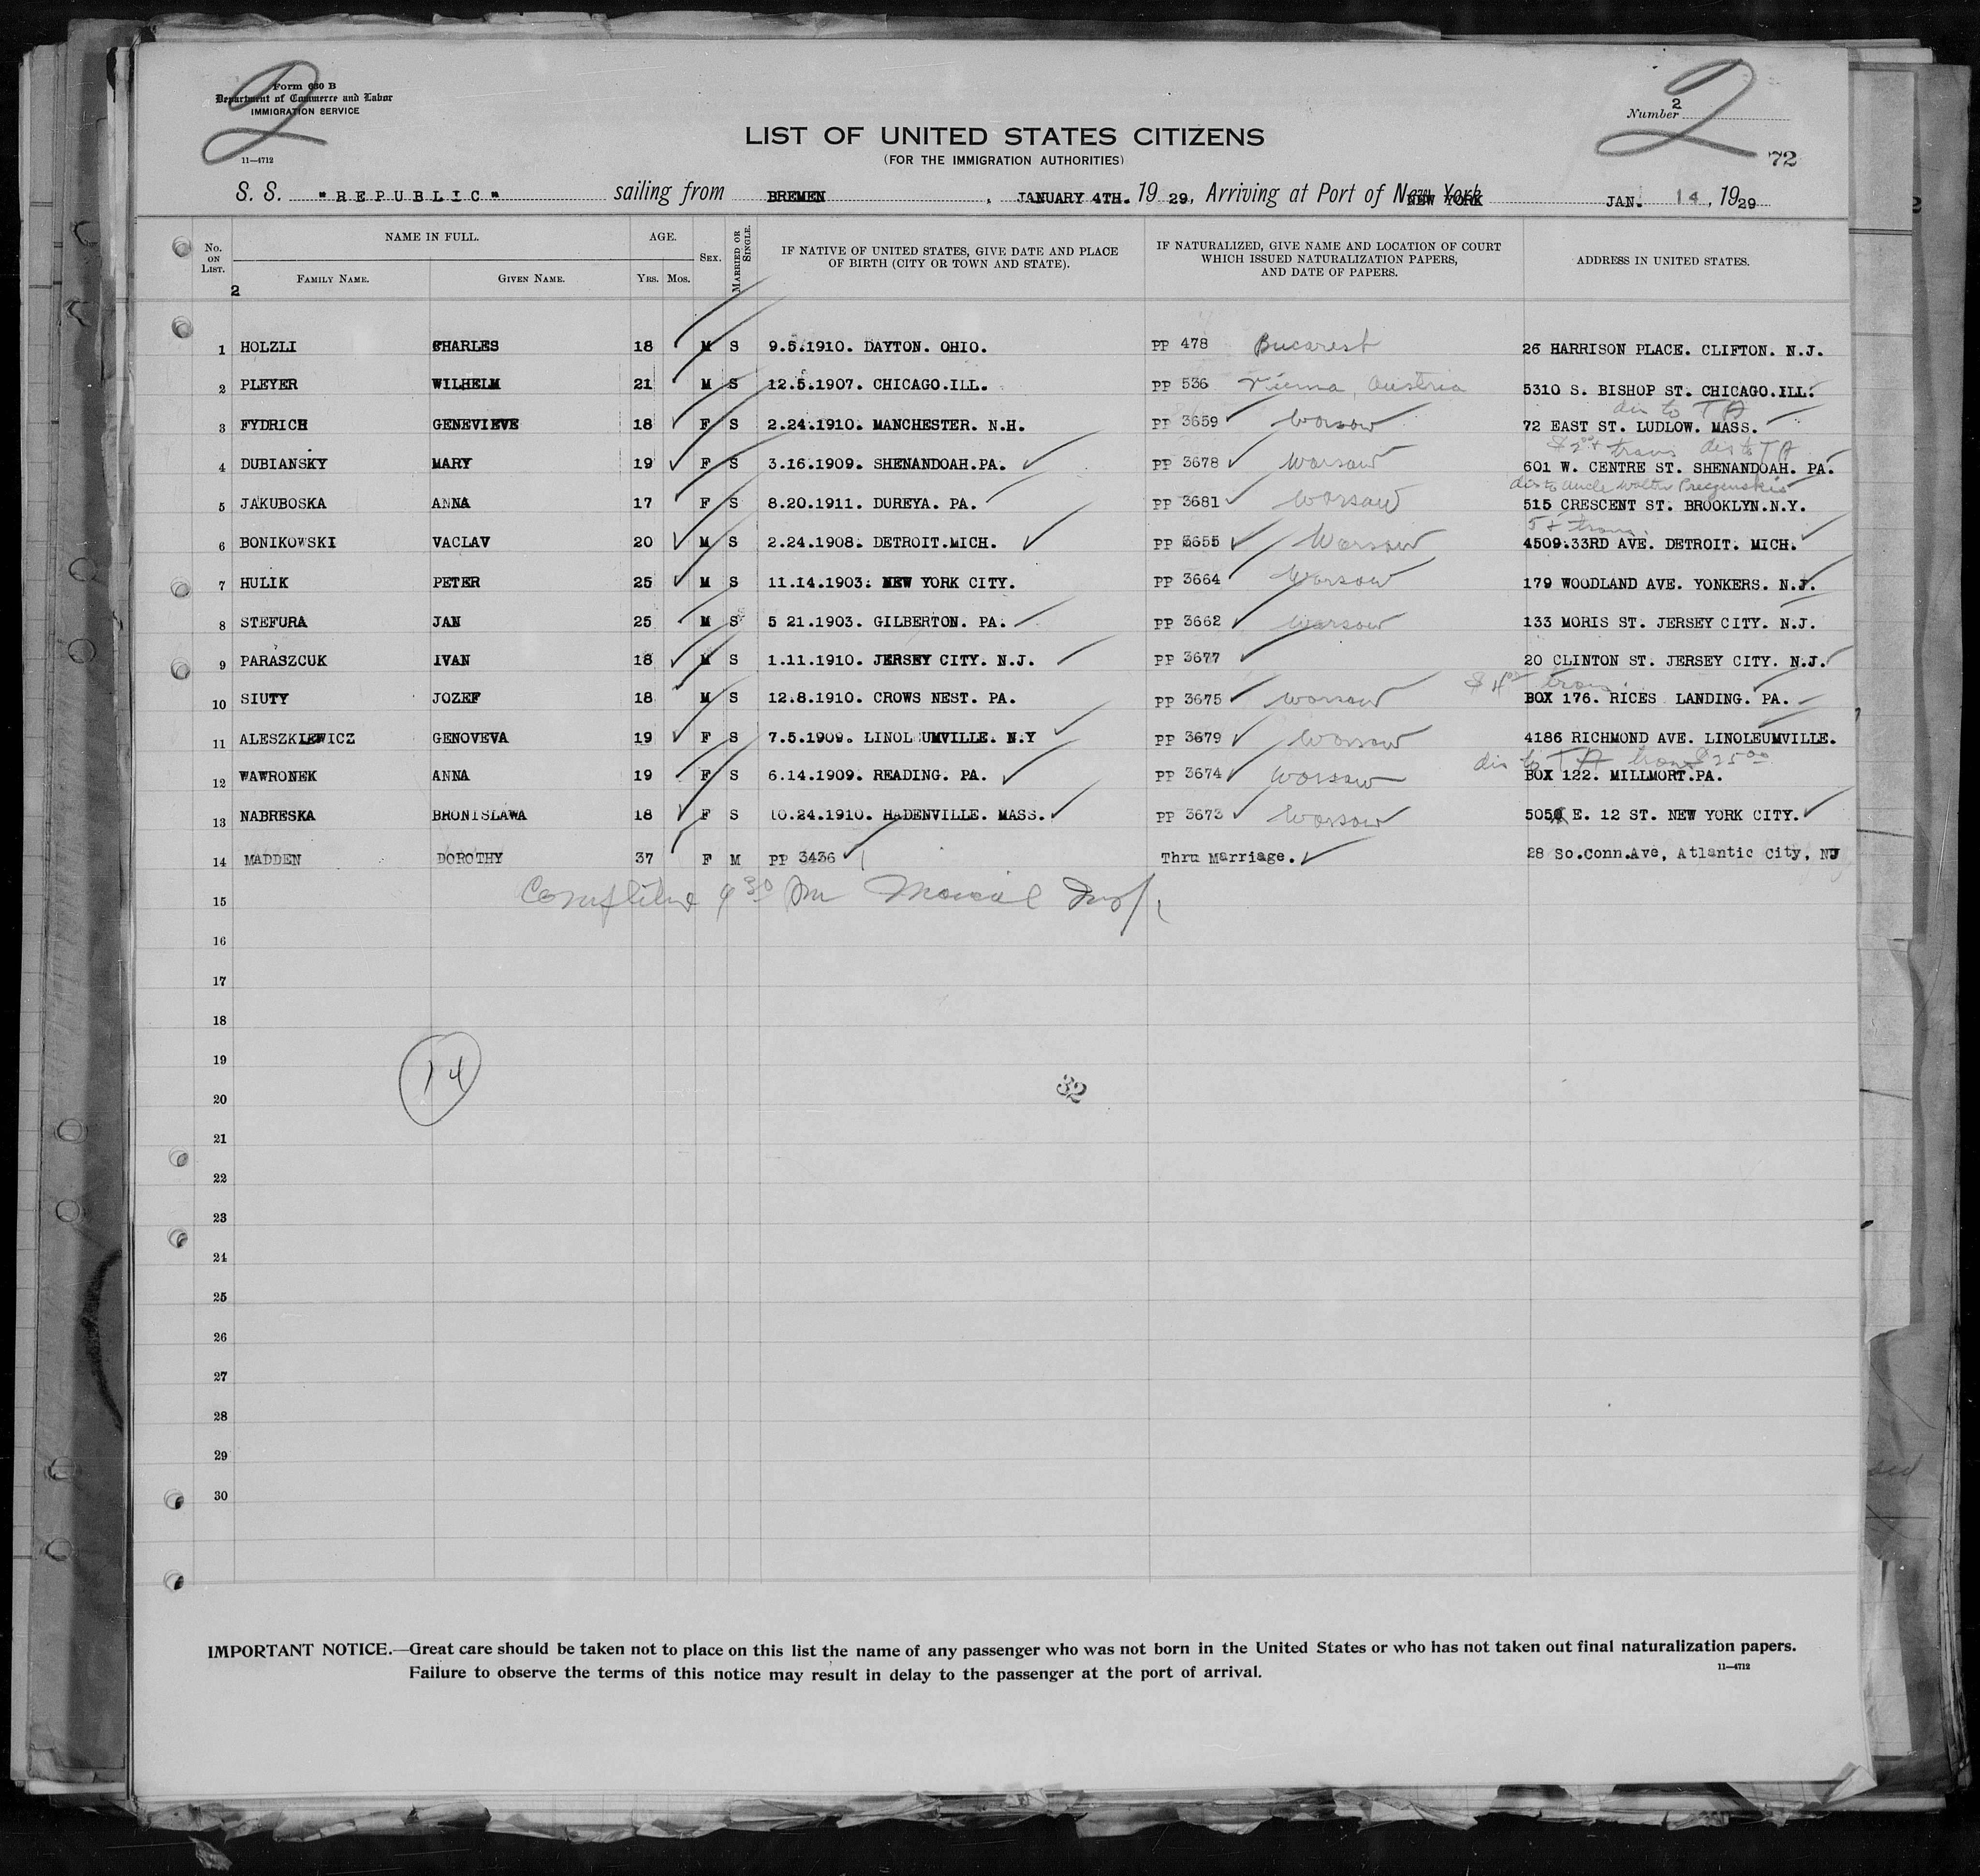 Form 630 B
Department of Commerce and Labor
IMMIGRATION SERVICE
11—4712
2
2
Number 2
72
LIST OF UNITED STATES CITIZENS
(FOR THE IMMIGRATION AUTHORITIES)
S. S. "REPUBLIC" sailing from BREMEN, JANUARY 4TH. 1929, Arriving at Port of New York NEW YORK JAN. 14, 1929
No. ON LIST. NAME IN FULL. AGE. SEX. MARRIED OR SINGLE. IF NATIVE OF UNITED STATES, GIVE DATE AND PLACE OF BIRTH (CITY OR TOWN AND STATE). IF NATURALIZED, GIVE NAME AND LOCATION OF COURT WHICH ISSUED NATURALIZATION PAPERS, AND DATE OF PAPERS. ADDRESS IN UNITED STATES.
FAMILY NAME. GIVEN NAME. YRS. MOS.
2
1 HOLZLI CHARLES 18 M S 9.5.1910. DAYTON. OHIO. PP 478 Bucarest 26 HARRISON PLACE. CLIFTON. N.J.
2 PLEYER WILHELM 21 M S 12.5.1907. CHICAGO.ILL. PP 536 Vienna, Austria 5310 S. BISHOP ST. CHICAGO.ILL.
dis to TA
3 FYDRICH GENEVIEVE 18 F S 2.24.1910. MANCHESTER. N.H. PP 3659 Warsaw 72 EAST ST. LUDLOW. MASS.
trans dis to TA
4 DUBIANSKY MARY 19 F S 3.16.1909. SHENANDOAH.PA. PP 3678 Warsaw 601 W. CENTRE ST. SHENANDOAH. PA.
dis to uncle Walter
5 JAKUBOSKA ANNA 17 F S 8.20.1911. DUREYA. PA. PP 3681 Warsaw 515 CRESCENT ST. BROOKLYN.N.Y.
5 + trans.
6 BONIKOWSKI VACLAV 20 M S 2.24.1908. DETROIT.MICH. PP 3655 Warsaw 4509.33RD AVE. DETROIT. MICH.
7 HULIK PETER 25 M S 11.14.1903. NEW YORK CITY. PP 3664 Warsaw 179 WOODLAND AVE. YONKERS. N.J.
8 STEFURA JAN 25 M S 5 21.1903. GILBERTON. PA. PP 3662 Warsaw 133 MORIS ST. JERSEY CITY. N.J.
9 PARASZCUK IVAN 18 M S 1.11.1910. JERSEY CITY. N.J. PP 3677 20 CLINTON ST. JERSEY CITY. N.J.
$4 00 trans.
10 SIUTY JOZEF 18 M S 12.8.1910. CROWS NEST. PA. PP 3675 Warsaw BOX 176. RICES LANDING. PA.
11 ALESZKIEWICZ GENOVEVA 19 F S 7.5.1909. LINOLEUMVILLE. N.Y PP 3679 Warsaw 4186 RICHMOND AVE. LINOLEUMVILLE.
dis to TA trans $25 00
12 WAWRONEK ANNA 19 F S 6.14.1909. READING. PA. PP 3674 Warsaw BOX 122. MILLMORT.PA.
13 NABRESKA BRONISLAWA 18 F S 10.24.1910. HADENVILLE. MASS. PP 3673 Warsaw 505 E. 12 ST. NEW YORK CITY.
14 MADDEN DOROTHY 37 F M PP 3436 Thru Marriage. 28 So.Conn.Ave, Atlantic City, NJ
15 9 30
16
17
18
19
14
20 32
21
22
23
24
25
26
27
28
29
30
IMPORTANT NOTICE.—Great care should be taken not to place on this list the name of any passenger who was not born in the United States or who has not taken out final naturalization papers.
Failure to observe the terms of this notice may result in delay to the passenger at the port of arrival.
11—4712